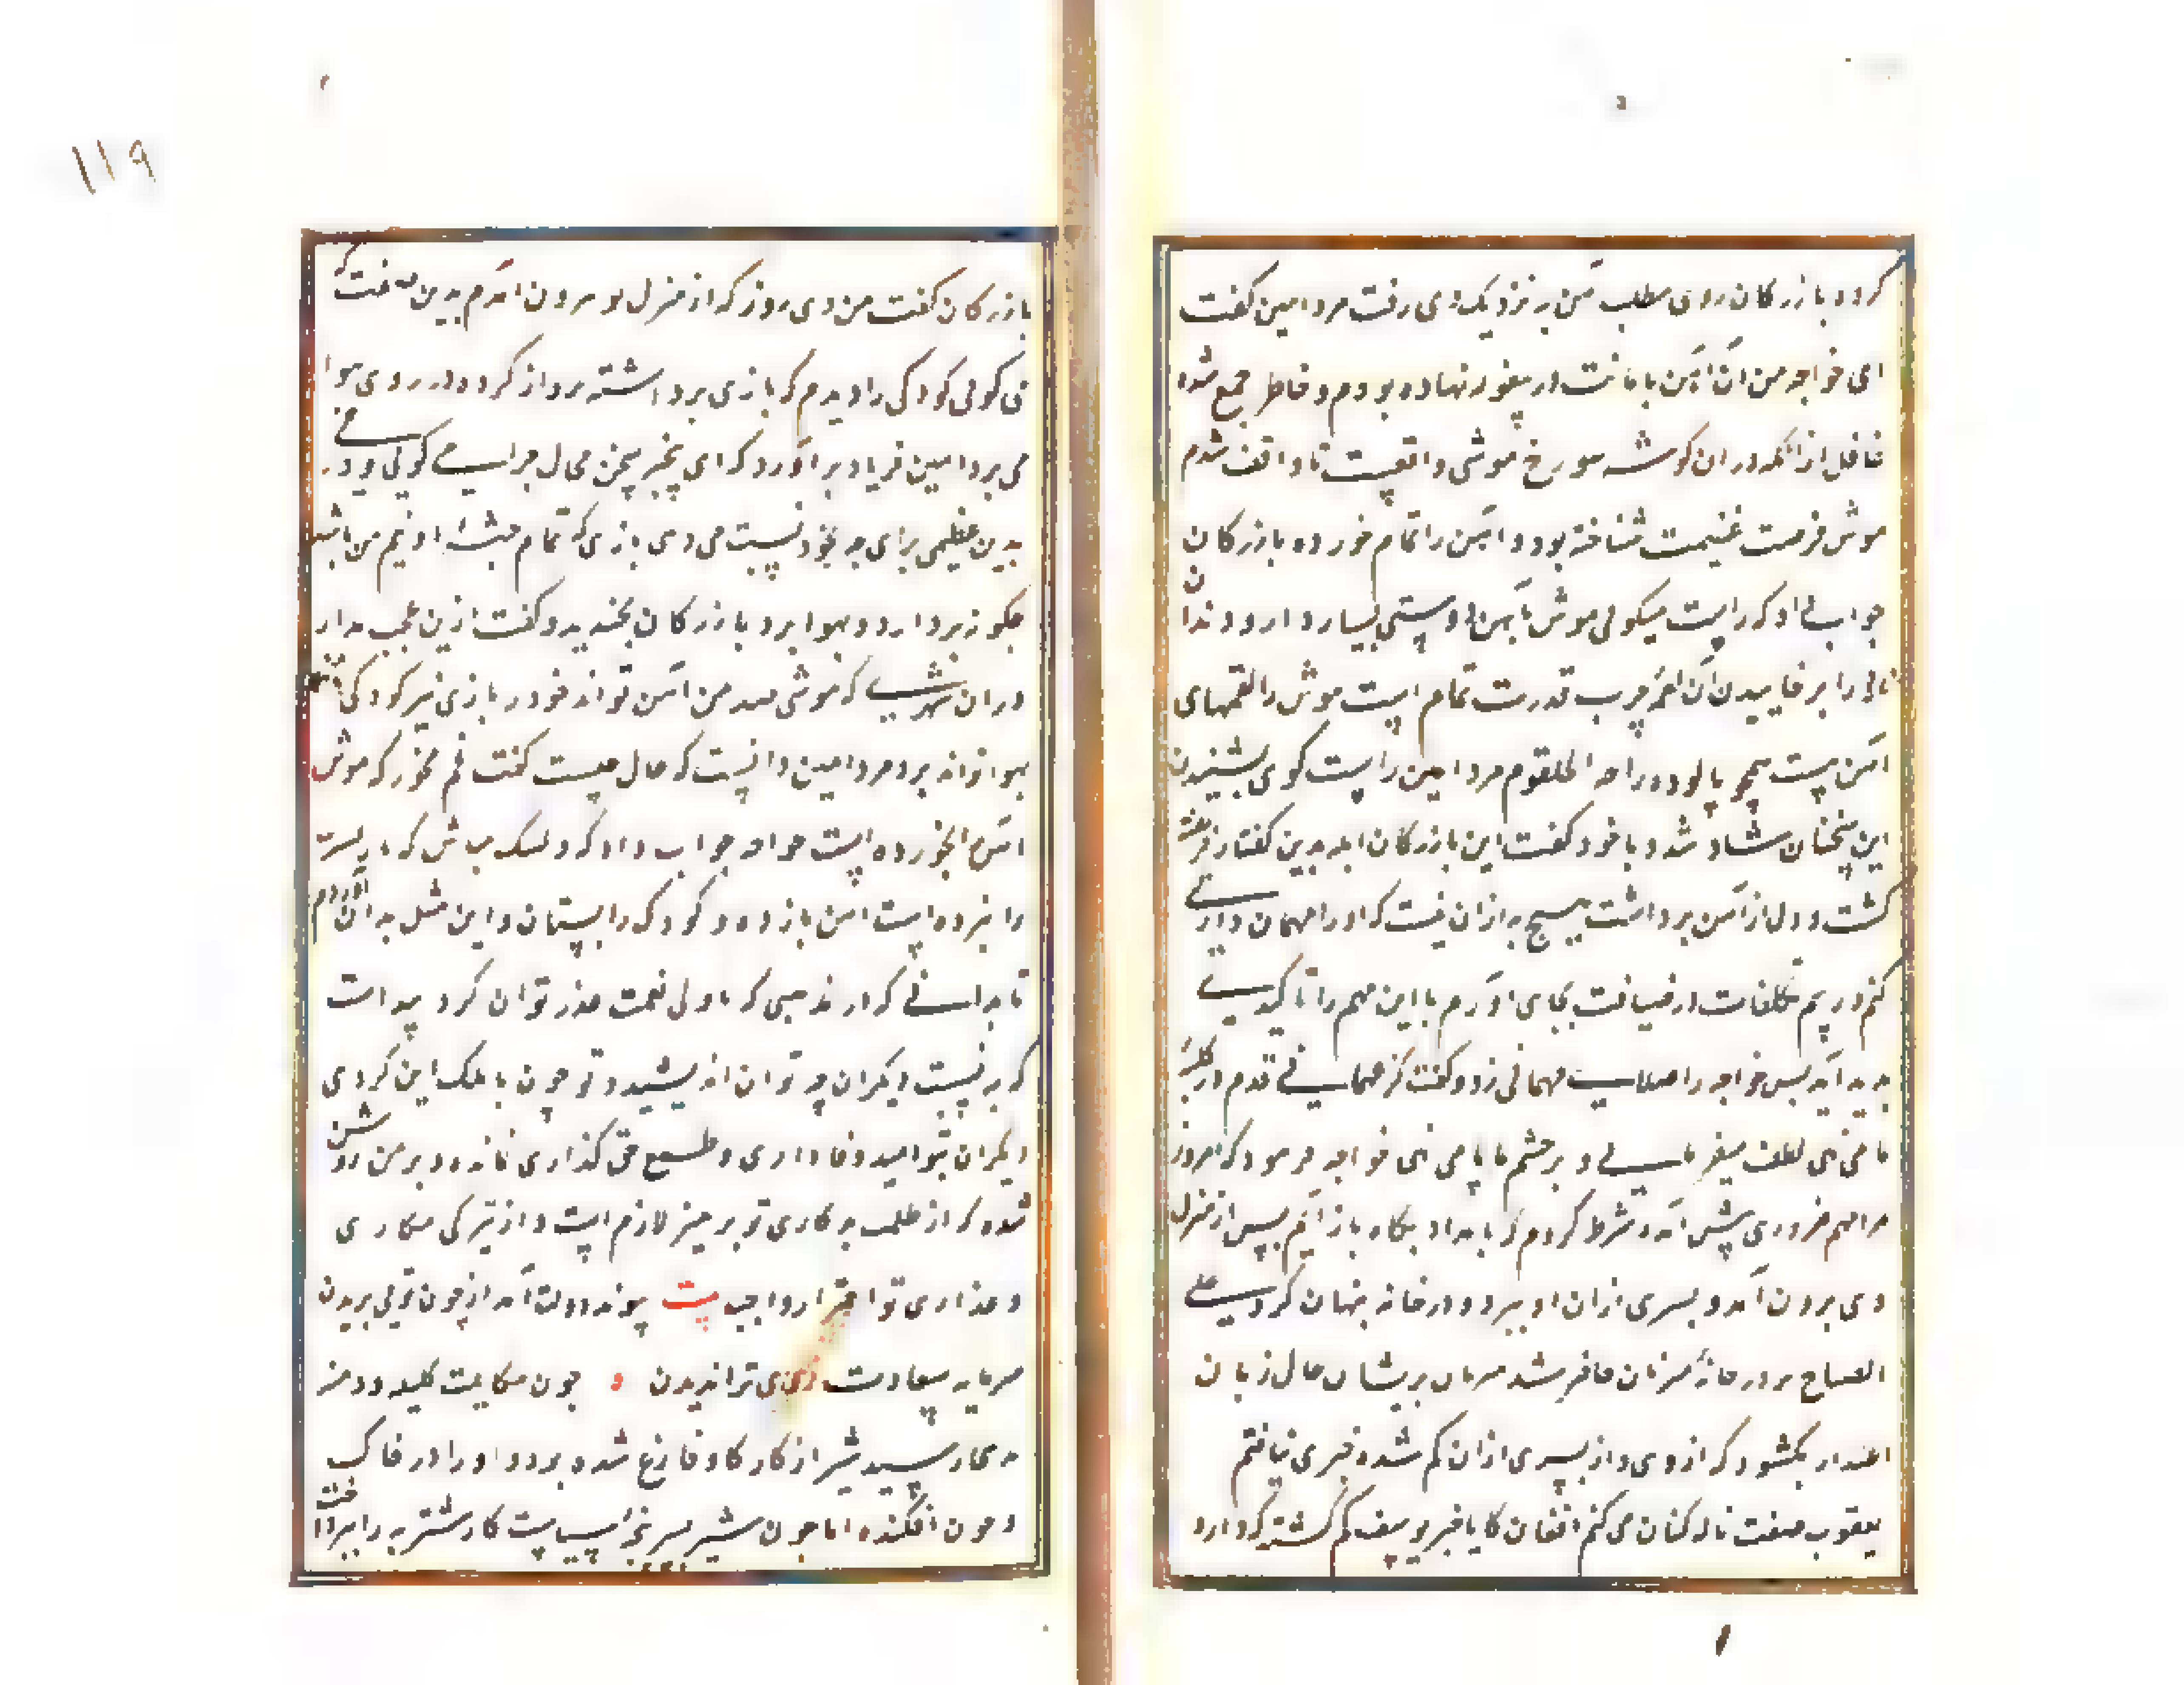 کرد و بازرکان روی بطلب آهن به نزدیک وی رفت مرد امین کفت
ای خواجه من آن آهن بامانت در بیغوله نهاده بودم و خاطر جمع شده
غافل از آنکه در ان کوشه سوراخ موشی واقعست تا واقف شدم
موش فرصت غنیمت شناخته بود و اهن را تمام خورده بازرکان
جواب داد که راست میکوئی موش بآهن دوستی بسیار دارد و دندان
او را بر خاییدن آن لقمه چرب قدرت تمام است موش را لقمهای
آهن هست همچو پالوده راحه الحلقوم مرد امین راست کوی بشنیدن
این سخنان شاد شد و با خود کفت این بازرکان ابله بدین کفتار فریفته
کشت و دل از آهن برداشت هیچ به از ان نیست که او را مهمان داری
کنم و رسم تکلفات در ضیافت بجای آورم تا این مهم را تاکیدی
پدید آید پس خواجه را صلای مهمانی زد و کفت کر بمهمانی قدم در کلبه
ما می نهی لطف میفرمایی و بر چشم ما پا می نهی خواجه فرمود که امروز
مرا مهم ضروری پیش آمده شرط کردم که بامداد پکاه باز آیم پس از منزل
وی برون آمد و پسری از ان او ببرد و در خانه پنهان کرد علی
الصباح بر در خانهٔ میزبان حاضر شد میزبان پریشان حال زبان
اعتذار بکشود که از دی باز پسری از ان کم شده خبری نیافتم
یعقوب صفت ناله کنان می کنم افغان کایا خبر یوسف کم کشته که دارد
۱۱۹
بازرکان کفت من دی روز که از منزل تو برون آمدم بدین صفت که
می کوئی کودکی را دیدم که بازی برداشته پرواز کرده در روی هوا
می برد امین فریاد برآورد که ای بیخبر سخن محال چرا می کوئی و دروغی
بدین عظیمی برای چه بخود نسبت می دهی بازی که تمام جثهٔ او نیم من باشد
چکونه بردارد و بهوا برد بازرکان بخندید و کفت ازین عجب مدار
در ان شهری که موشی صد من آهن تواند خورد بازی نیز کودکی
بهوا تواند برد مرد امین دانست که حال چیست کفت غم مخور که موش
آهن را نخورده است خواجه جواب داد که دلتنک مباش که باز پسرت
را نبرده است آهن باز ده و کودک را بستان و این مثل بدان آوردم
تا بدانی که در مذهبی که با ولی نعمت غدر توان کرد پیداست
که به نسبت دیکران چه توان اندیشید و تو چون با ملک این کردی
دیکران بتو امید وفاداری و طمع حق گذاری نمانده و بر من روشن
شده که از ظلمت بدکاری تو پرهیز لازم است و از تیرکی مکاری
و غداری تو احتراز واجب بیت پیوند دولت آمد از چون توئی بریدن
سرمایه سعادت روی ترا ندیدن و چون مکالمت کلیله و دمنه
بدینجا رسید شیر از کار کاو فارغ شده بود و او را در خاک
و خون افکنده اما چون شیر بسر پنجهٔ سیاست کار شنزبه را بپرداخت